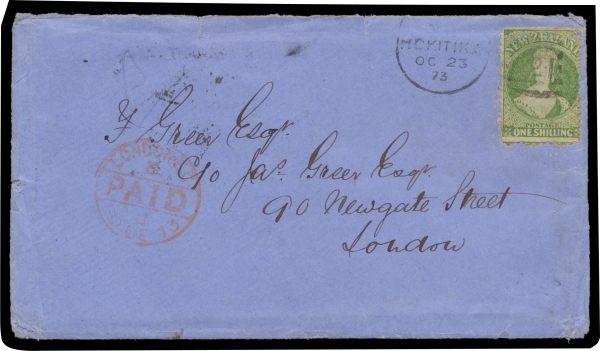 HOKITIKA
OC 23
73
NEW ZEALAND
POSTAGE
ONE SHILLING
F Greer Esqr.
C/o Jas. Greer Esqr.
90 Newgate Street
London
LONDON
PAID
DE 73